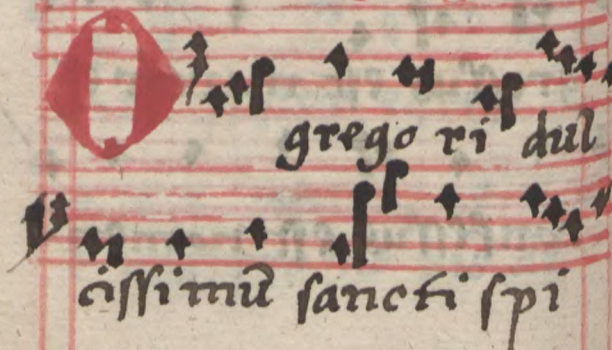 O gregori dul
cissimū sancti spi